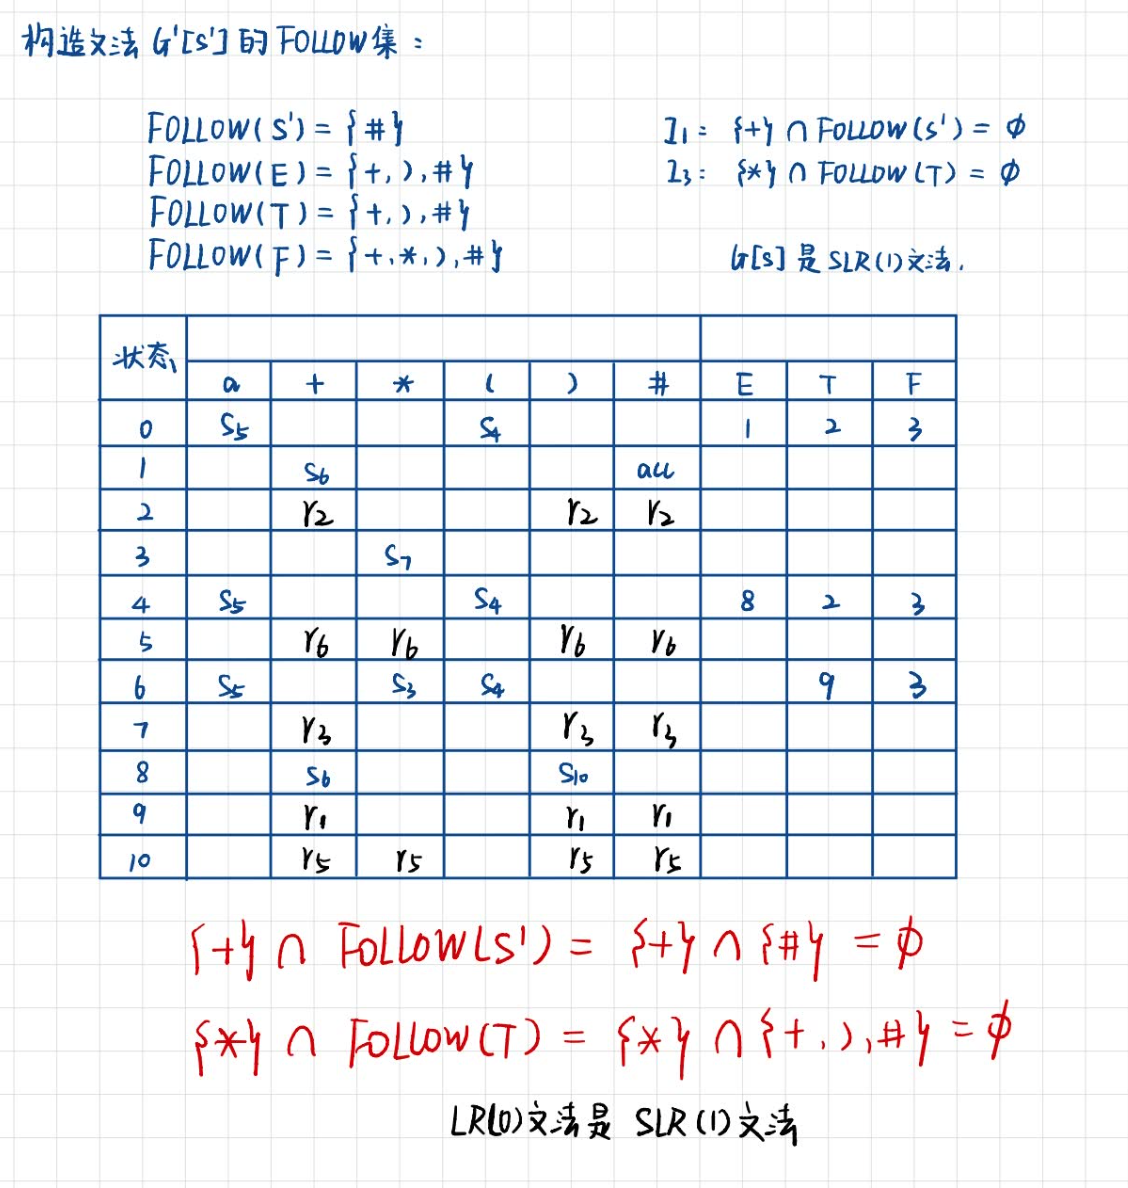 构造文法 G'[S'] 的 FOLLOW集：
FOLLOW(S') = {#}
FOLLOW(E) = {+,),#}
FOLLOW(T) = {+,),#}
FOLLOW(F) = {+,*,),#}
I1: {+} ∩ FOLLOW(S') = φ
I3: {*} ∩ FOLLOW(T) = φ
G[S] 是 SLR(1)文法.
状态 a + * ( ) # E T F
0 S5 S4 1 2 3
1 S6 acc
2 r2 r2 r2
3 S7
4 S5 S4 8 2 3
5 r6 r6 r6 r6
6 S5 S3 S4 9 3
7 r3 r3 r3
8 S6 S10
9 r1 r1 r1
10 r5 r5 r5 r5
{+} ∩ FOLLOW(S') = {+} ∩ {#} = φ
{*} ∩ FOLLOW(T) = {*} ∩ {+,),#} = φ
LR(0)文法是 SLR(1)文法